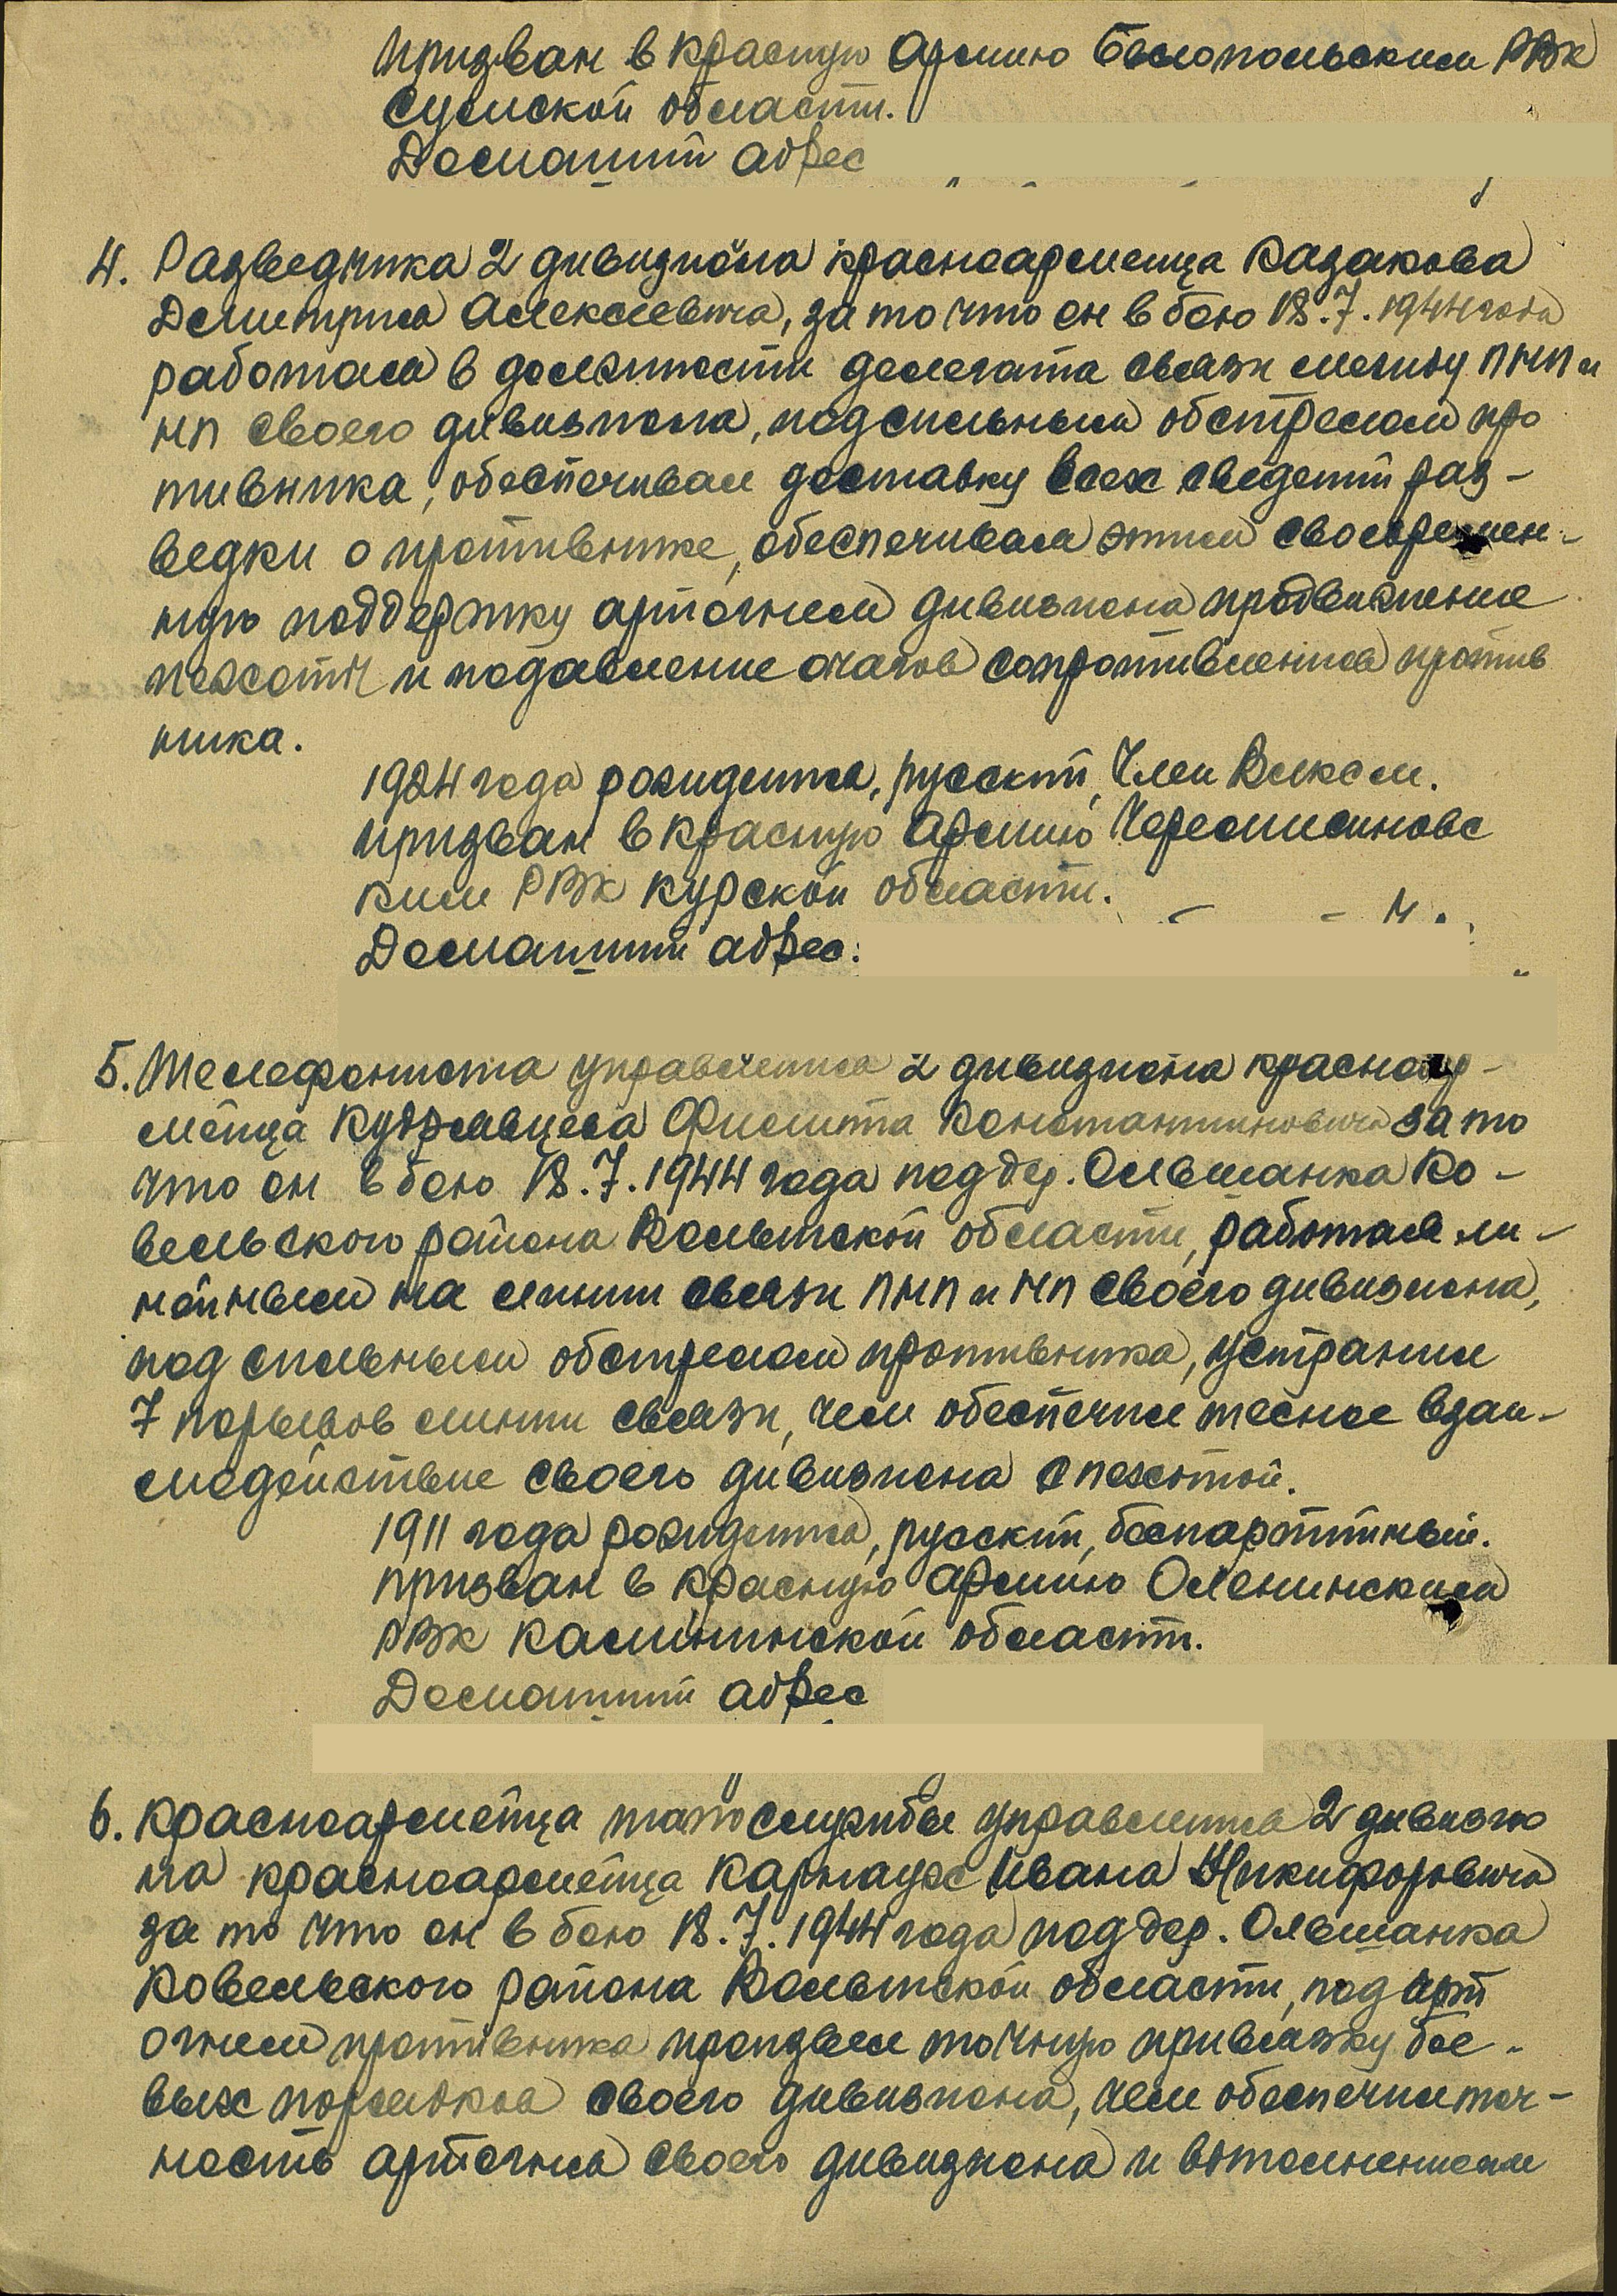 Призван в Красную Армию Белопольским РВК
Сумской области.
Домашний адрес
4. Разведчика 2 дивизиона красноармейца Казакова
Дмитрия Алексеевича, за то что он в бою 18.7.1944 года
работая в должности делегата связи между ПНП и
НП своего дивизиона, под сильным обстрелом про
тивника, обеспечивал доставку всех сведений раз-
ведки о противнике, обеспечивая этим своевремен-
ную поддержку артогнем дивизиона продвижение
пехоты и подавление очагов сопротивления против
ника.
1924 года рождения, русский, Член ВЛКСМ.
Призван в Красную Армию Черемисиновс
ким РВК Курской области.
Домашний адрес:
5. Телефониста управления 2 дивизиона красноар-
мейца Кудрявцева Филиппа Константиновича за то
что он в бою 18.7.1944 года под дер. Ольшанка Ко-
вельского района Волынской области, работая ли-
нейным на линии связи ПНП и НП своего дивизиона,
под сильным обстрелом противника, устранил
7 порывов линии связи, чем обеспечил тесное взаи-
модействие своего дивизиона с пехотой.
1911 года рождения, русский, беспартийный.
Призван в Красную Армию Оленинским
РВК Калининской области.
Домашний адрес
6. Красноармейца топослужбы управления 2 дивизио
на красноармейца Карнаух Ивана Никифоровича
за то что он в бою 18.7.1944 года под дер. Ольшанка
Ковельского района Волынской области, под арт
огнем противника произвел точную привязку бое-
вых порядков своего дивизиона, чем обеспечил точ-
ность артогня своего дивизиона и выполнением